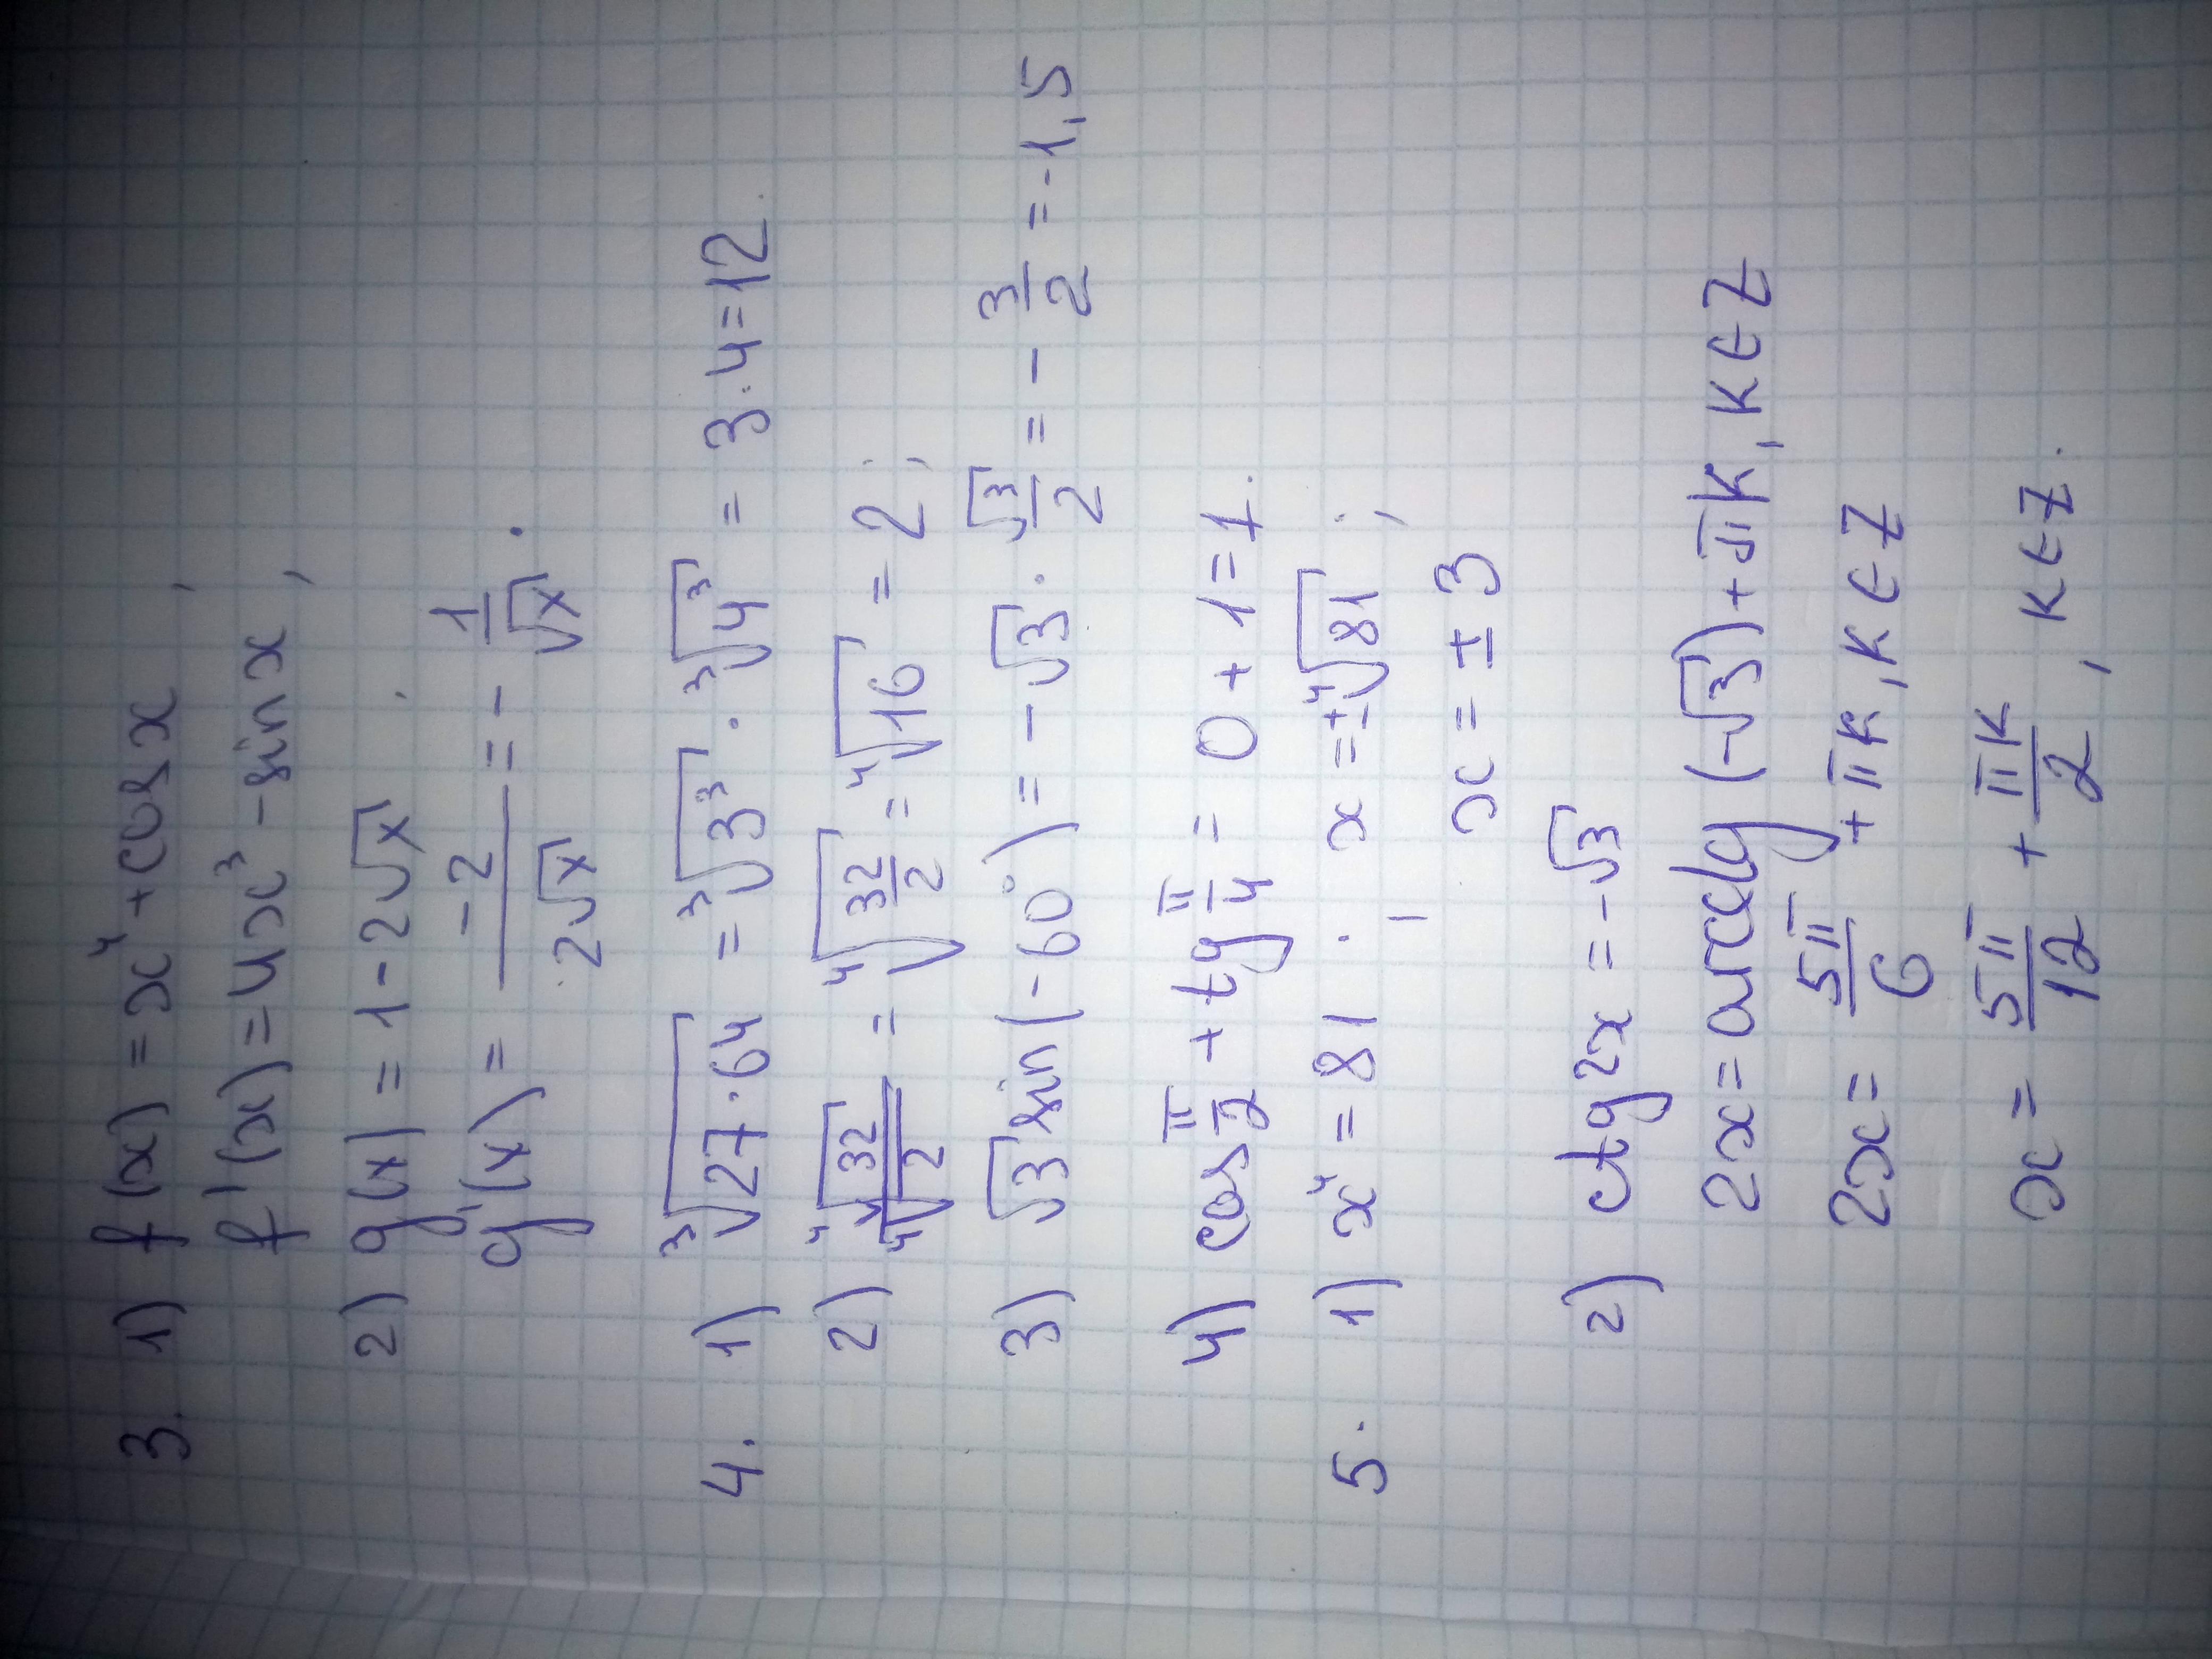 3. 1) f(x) = x⁴ + cos x ;
f'(x) = 4x³ - sin x ;
2) g(x) = 1 - 2√x ;
g'(x) = -2/(2√x) = - 1/√x .
4. 1) ∛(27·64) = ∛(3³) · ∛(4³) = 3·4=12.
2) ⁴√32/⁴√2 = ⁴√(32/2) = ⁴√16 = 2 ;
3) √3 sin(-60°) = -√3 · √3/2 = - 3/2 = -1,5
4) cos π/2 + tg π/4 = 0 + 1 = 1.
5. 1) x⁴ = 81 ; x = ±⁴√81 ;
x = ±3
2) ctg 2x = -√3
2x = arcctg (-√3) + πk, k∈Z
2x = 5π/6 + πk, k∈Z
x = 5π/12 + πk/2, k∈Z.